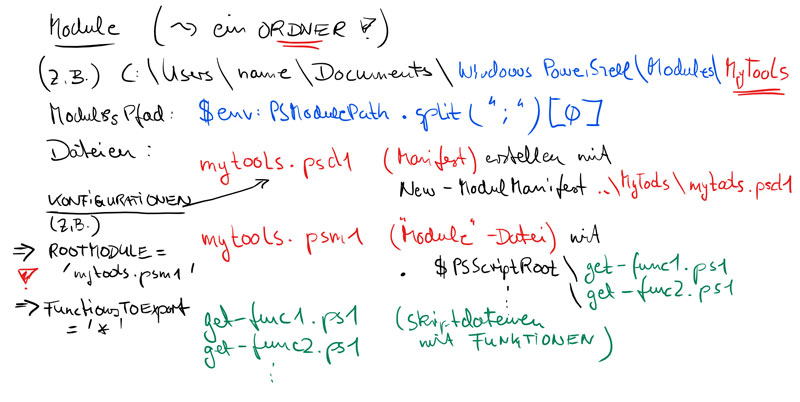 Module (~> ein ORDNER !)
(z.B.) C:\Users\name\Documents\Windows PowerShell\Modules\MyTools
Modules Pfad: $env:PSModulePath.split(";")[0]
Dateien:
mytools.psd1 (Manifest) erstellen mit
New-ModulManifest ..\MyTools\mytools.psd1
KONFIGURATIONEN
(z.B.)
mytools.psm1 ("Module"-Datei) mit
=> ROOTMODULE =
'mytools.psm1'
. $PSScriptRoot\get-func1.ps1
\get-func2.ps1
=> FunctionsToExport
= '*'
get-func1.ps1 (Skriptdateien
get-func2.ps1 mit FUNKTIONEN)